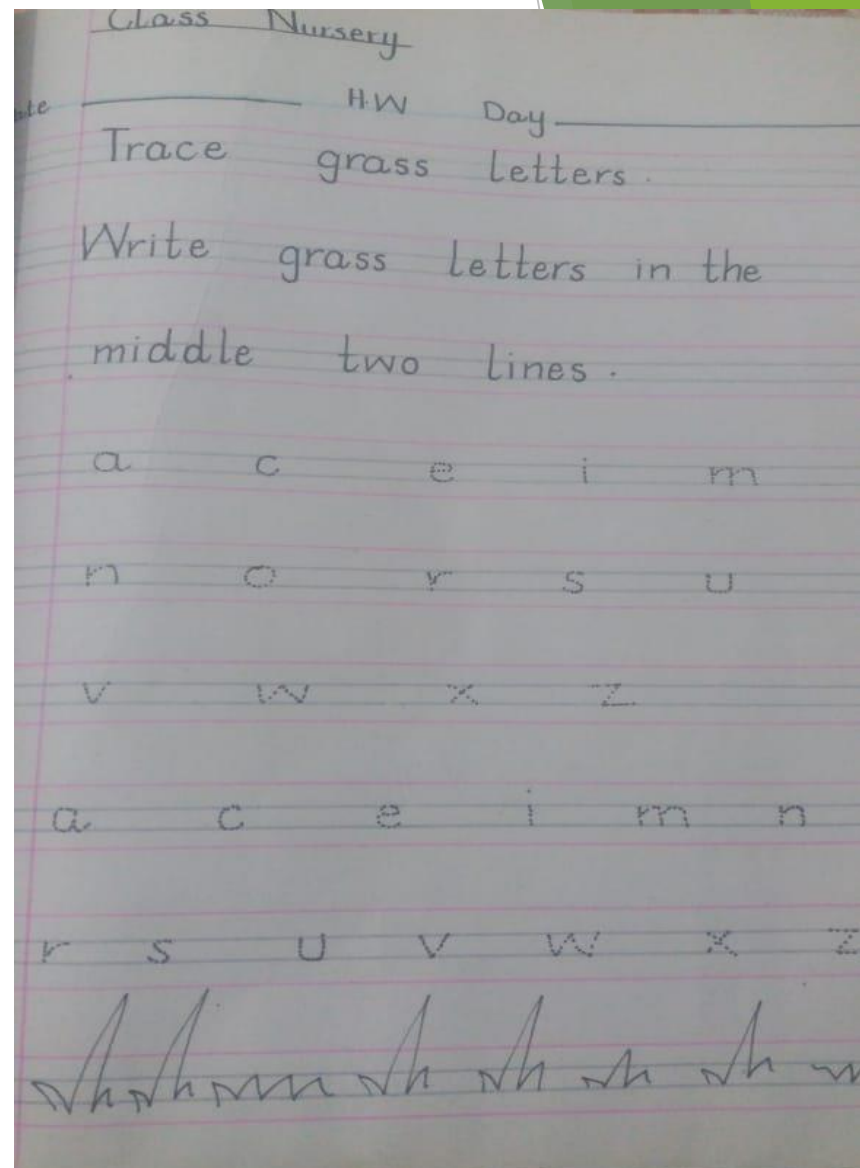 Class Nursery
H.W Day
Trace grass letters.
Write grass letters in the
middle two lines.
a c e i m
n o r s u
v w x z
a c e i m n
r s u v w x z